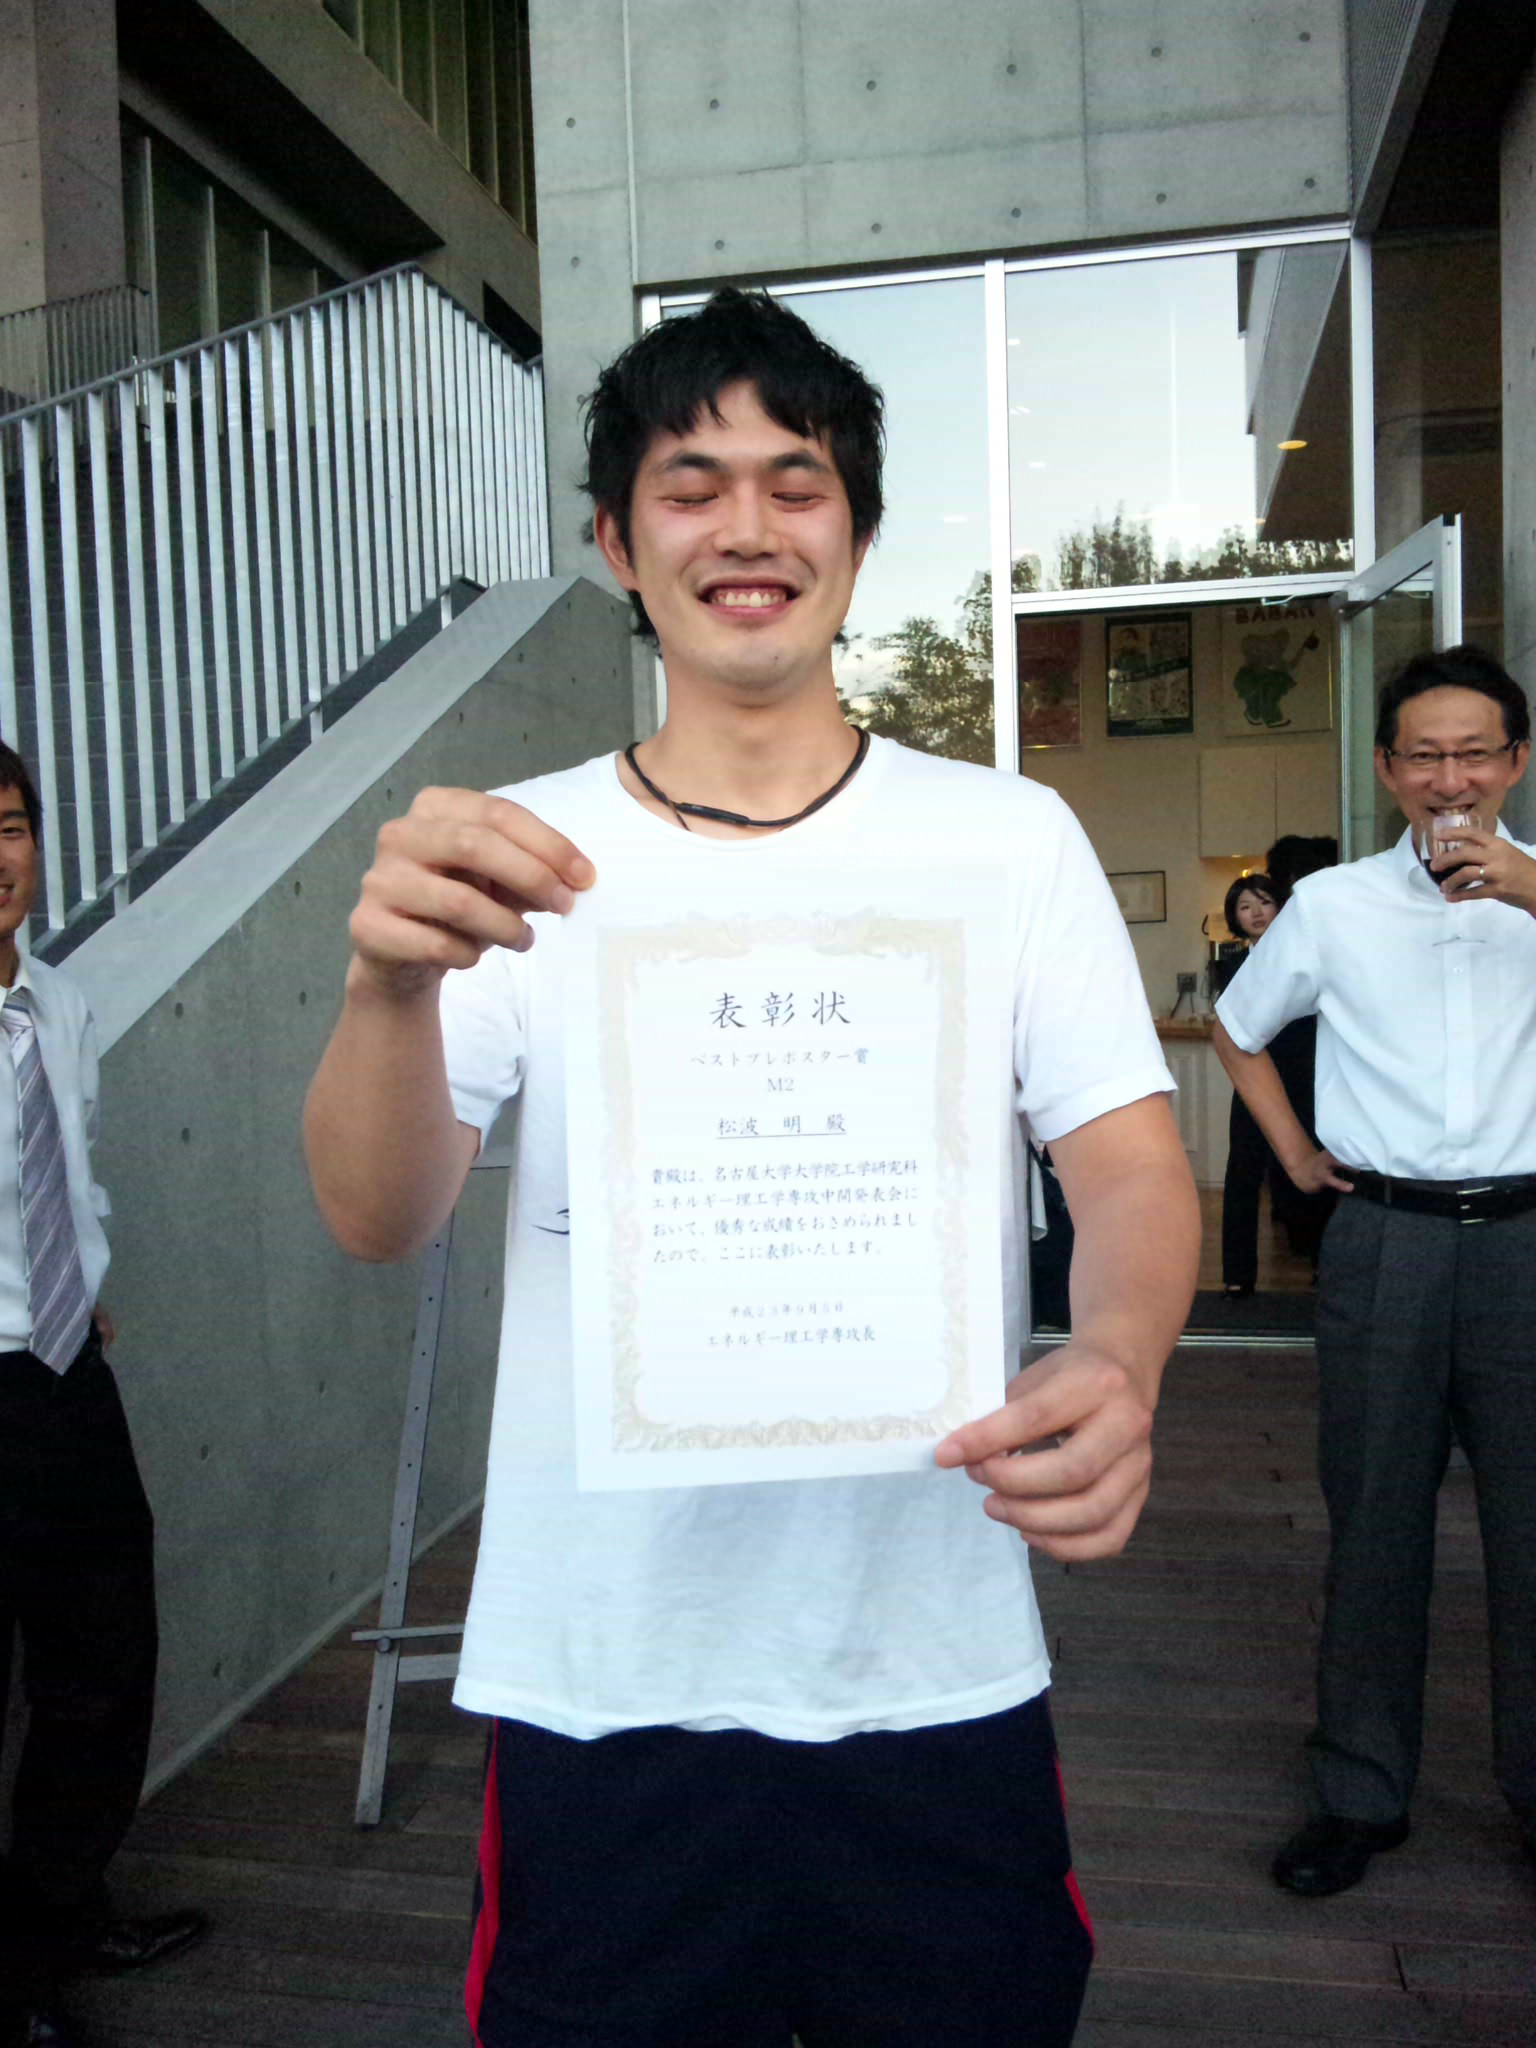 BABAR
表彰状
ベストプレポスター賞
M2
松波 明 殿
貴殿は、名古屋大学大学院工学研究科
エネルギー理工学専攻中間発表会に
おいて、優秀な成績をおさめられまし
たので、ここに表彰いたします。
平成23年9月5日
エネルギー理工学専攻長